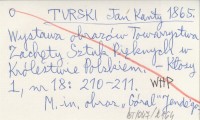 TURSKI Jan Kanty 1865.
Wystawa obrazów Towarzystwa
Zachęty Sztuk Pięknych w
Królestwie Polskiem. – Kłosy
1, nr 18: 210-211. WHP
M. in. obraz "Góral"